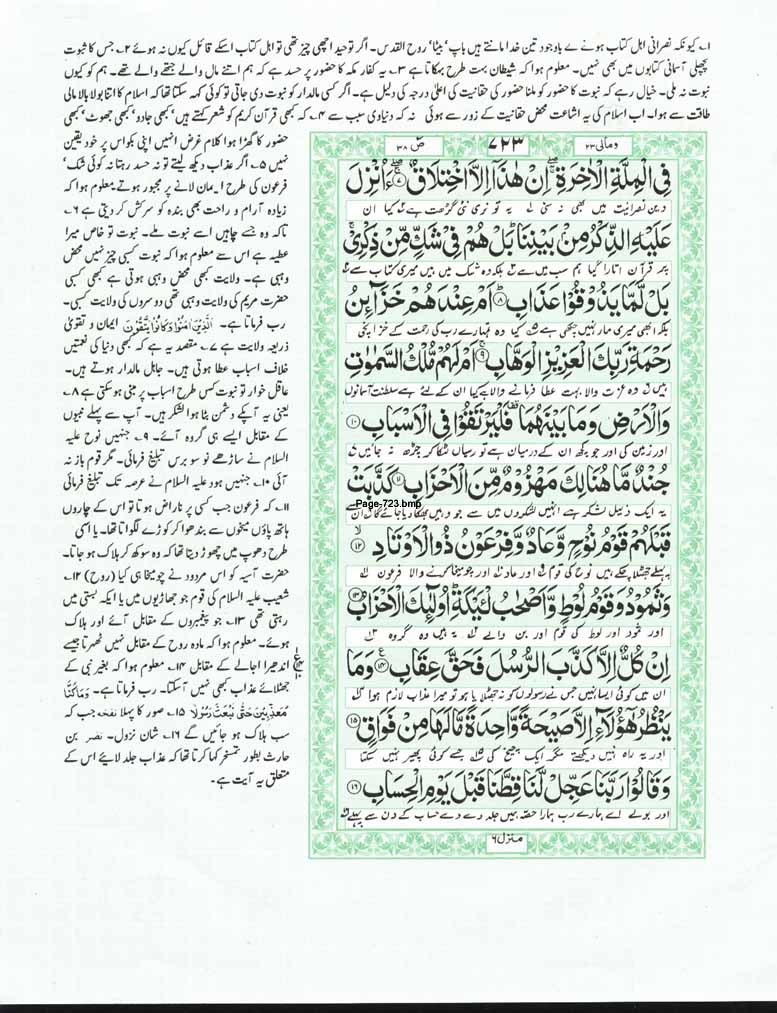 ۱؎ کیونکہ نصرانی اہل کتاب ہونے کے باوجود تین خدا مانتے ہیں باپ' بیٹا' روح القدس۔ اگر توحید اچھی چیز تھی تو اہل کتاب اسکے قائل کیوں نہ ہوئے ۲؎ جس کا ثبوت
پچھلی آسمانی کتابوں میں بھی نہیں۔ معلوم ہوا کہ شیطان بہت طرح بہکاتا ہے ۳؎ یہ کفار مکہ کا حضور پر حسد ہے کہ ہم اتنے مال والے جتھے والے تھے۔ ہم کو کیوں
نبوت نہ ملی۔ خیال رہے کہ نبوت کا حضور کو ملنا حضور کی حقانیت کی اعلیٰ درجہ کی دلیل ہے۔ اگر کسی مالدار کو نبوت دی جاتی تو کوئی کہہ سکتا تھا کہ اسلام کا اتنا بولا بالا مالی
طاقت سے ہوا۔ اب اسلام کی یہ اشاعت محض حقانیت کے زور سے ہوئی نہ کہ دنیاوی سبب سے ۴؎ کہ کبھی قرآن کریم کو شعر کہتے ہیں' کبھی جادو' کبھی جھوٹ' کبھی
حضور کا گھڑا ہوا کلام غرض انہیں اپنی بکواس پر خود یقین
نہیں ۵؎ اگر عذاب دیکھ لیتے تو نہ حسد رہتا نہ کوئی شک'
فرعون کی طرح ایمان لانے پر مجبور ہوتے معلوم ہوا کہ
زیادہ آرام و راحت بھی بندہ کو سرکش کر دیتی ہے ۶؎
تاکہ وہ جسے چاہیں اسے نبوت ملے۔ نبوت تو خاص میرا
عطیہ ہے اس سے معلوم ہوا کہ نبوت کسبی چیز نہیں محض
وہبی ہے۔ ولایت کبھی محض وہبی ہوتی ہے کبھی کسبی
حضرت مریم کی ولایت وہبی تھی دوسروں کی ولایت کسبی۔
رب فرماتا ہے۔ اَلَّذِیْنَ اٰمَنُوْا وَکَانُوْا یَتَّقُوْنَ ایمان و تقویٰ
ذریعہ ولایت ہے ۷؎ مقصد یہ ہے کہ کبھی دنیا کی نعمتیں
خلاف اسباب عطا ہوتی ہیں۔ جاہل مالدار ہوتے ہیں۔
عاقل خوار تو نبوت کس طرح اسباب پر مبنی ہو سکتی ہے ۸؎
یعنی یہ آپکے دشمن پٹا ہوا لشکر ہیں۔ آپ سے پہلے نبیوں
کے مقابل ایسے ہی گروہ آئے۔ ۹؎ جنہیں نوح علیہ
السلام نے ساڑھے نو سو برس تبلیغ فرمائی۔ مگر قوم باز نہ
آئی ۱۰؎ جنہیں ہود علیہ السلام نے عرصہ تک تبلیغ فرمائی
۱۱؎ کہ فرعون جب کسی پر ناراض ہوتا تو اس کے چاروں
ہاتھ پاؤں میخوں سے بندھوا کر کوڑے لگواتا تھا۔ یا اسی
طرح دھوپ میں چھوڑ دیتا تھا کہ وہ سوکھ کر ہلاک ہو جاتا۔
حضرت آسیہ کو اس مردود نے چومیخا ہی کیا (روح) ۱۲؎
شعیب علیہ السلام کی قوم جو جھاڑیوں میں یا ایکہ بستی میں
رہتی تھی ۱۳؎ جو پیغمبروں کے مقابل آئے اور ہلاک
ہوئے۔ معلوم ہوا کہ مادہ روح کے مقابل نہیں ٹھہرتا جیسے
اندھیرا اجالے کے مقابل ۱۴؎ معلوم ہوا کہ بغیر نبی کے
جھٹلائے عذاب کبھی نہیں آسکتا۔ رب فرماتا ہے۔ وَمَا کُنَّا
مُعَذِّبِیْنَ حَتّٰی نَبْعَثَ رَسُوْلًا ۱۵؎ صور کا پہلا نفحہ جب کہ
سب ہلاک ہو جائیں گے ۱۶؎ شان نزول۔ نضر بن
حارث بطور تمسخر کہا کرتا تھا کہ عذاب جلد لایئے اس کے
متعلق یہ آیت ہے۔
ومالی ۲۳ ۷۲۳ صٓ ۳۸
فِی الْمِلَّةِ الْاٰخِرَةِ اِنْ هٰذَاۤ اِلَّا اخْتِلَاقٌ ۷ ءَاُنْزِلَ
دین نصرانیت میں بھی نہ سنی یہ تو نری نئی گڑھت ہے کیا ان
عَلَیْهِ الذِّكْرُ مِنْۢ بَیْنِنَا بَلْ هُمْ فِیْ شَكٍّ مِّنْ ذِكْرِیْ
پر قرآن اتارا گیا ہم سب میں سے بلکہ وہ شک میں ہیں میری کتاب سے
بَلْ لَّمَّا یَذُوْقُوْا عَذَابِ ۸ اَمْ عِنْدَهُمْ خَزَآىِٕنُ
بلکہ ابھی میری مار نہیں چکھی ہے کیا وہ تمہارے رب کی رحمت کے خزانچی
رَحْمَةِ رَبِّكَ الْعَزِیْزِ الْوَهَّابِ ۹ اَمْ لَهُمْ مُّلْكُ السَّمٰوٰتِ
ہیں وہ عزت والا بہت عطا فرمانے والا ہے کیا ان کے لئے ہے سلطنت آسمانوں
وَالْاَرْضِ وَمَا بَیْنَهُمَا فَلْیَرْتَقُوْا فِی الْاَسْبَابِ ۱۰
اور زمین کی اور جو کچھ ان کے درمیان ہے تو رسیاں لٹکا کر چڑھ نہ جائیں
جُنْدٌ مَّا هُنَالِكَ مَهْزُوْمٌ مِّنَ الْاَحْزَابِ ۱۱ كَذَّبَتْ
یہ ایک ذلیل لشکر ہے انہیں لشکروں میں سے جو وہیں بھگا دیا جائے گا ان
Page-723.bmp
قَبْلَهُمْ قَوْمُ نُوْحٍ وَّعَادٌ وَّفِرْعَوْنُ ذُو الْاَوْتَادِ ۱۲
سے پہلے جھٹلا چکے ہیں نوح کی قوم اور عاد اور چومیخا کرنے والا فرعون
وَثَمُوْدُ وَقَوْمُ لُوْطٍ وَّاَصْحٰبُ لْـَٔیْكَةِ اُولٰٓىِٕكَ الْاَحْزَابُ ۱۳
اور ثمود اور لوط کی قوم اور بن والے یہ ہیں وہ گروہ
اِنْ كُلٌّ اِلَّا كَذَّبَ الرُّسُلَ فَحَقَّ عِقَابِ ۱۴ وَمَا
ان میں کوئی ایسا نہیں جس نے رسولوں کو نہ جھٹلایا ہو تو میرا عذاب لازم ہوا
یَنْظُرُ هٰۤؤُلَآءِ اِلَّا صَیْحَةً وَّاحِدَةً مَّا لَهَا مِنْ فَوَاقٍ ۱۵
اور یہ راہ نہیں دیکھتے مگر ایک چیخ کی جسے کوئی پھیر نہیں سکتا
وَقَالُوْا رَبَّنَا عَجِّلْ لَّنَا قِطَّنَا قَبْلَ یَوْمِ الْحِسَابِ ۱۶
اور بولے اے ہمارے رب ہمارا حصہ ہمیں جلد دے دے حساب کے دن سے پہلے
منزل ۶